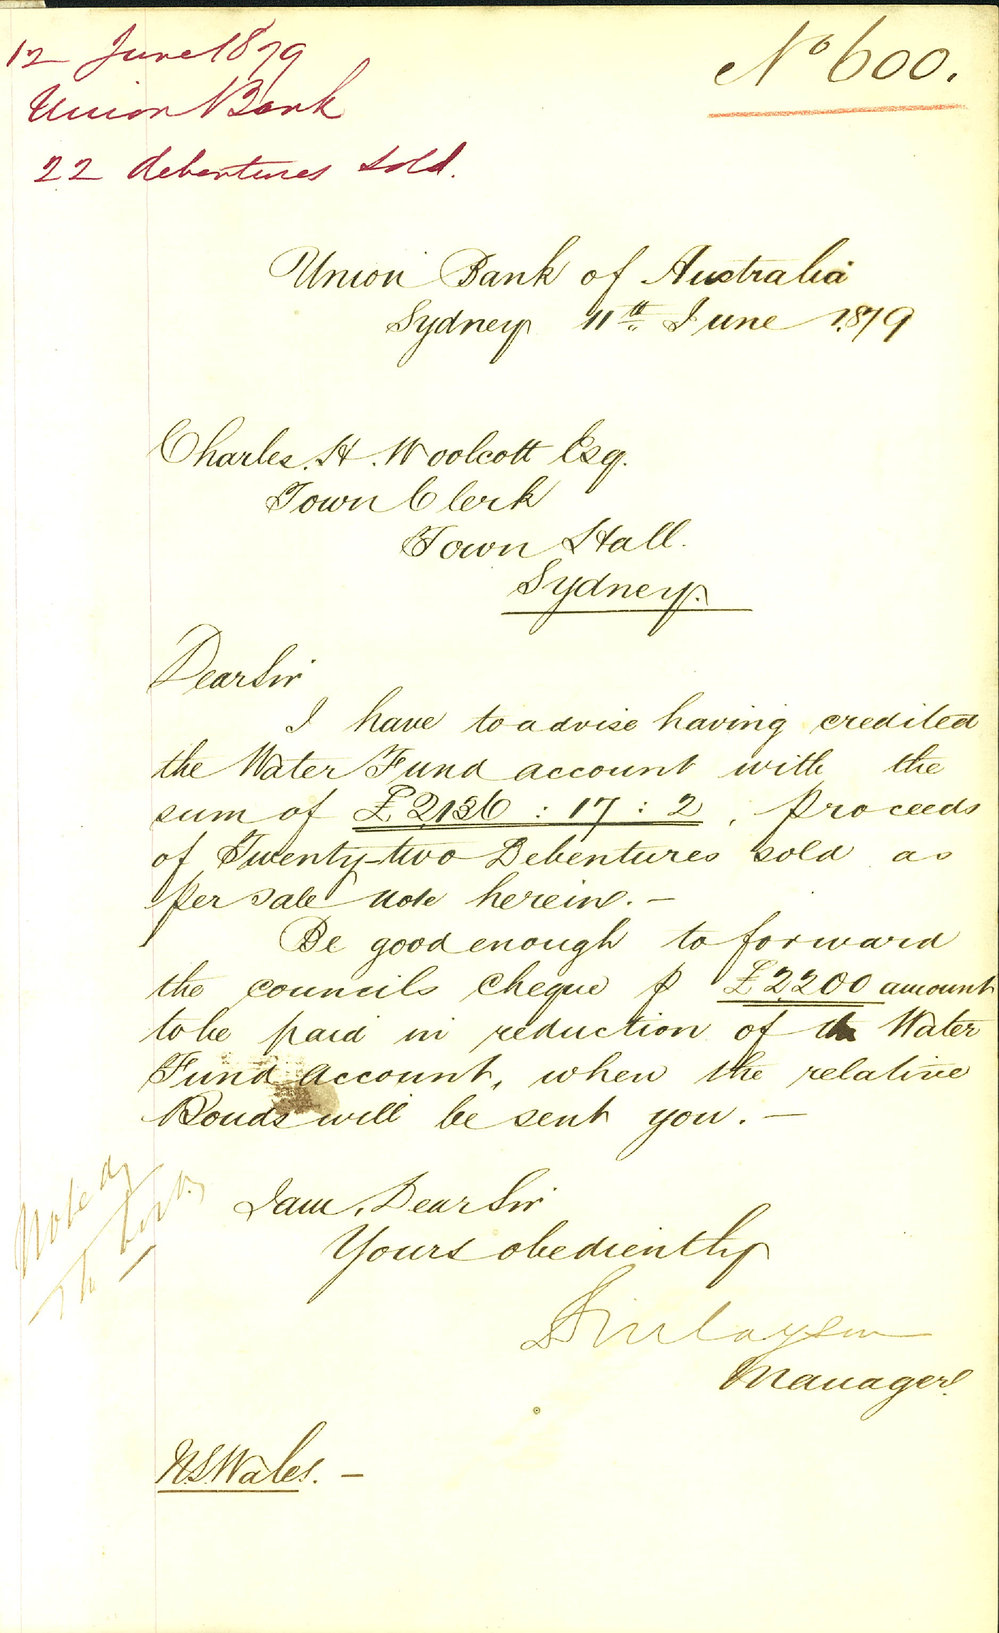 12 June 1879
Union Bank
22 debentures sold.
No 600.
Union Bank of Australia
Sydney 11th June 1879
Charles. H. Woolcott Esq.
Town Clerk
Town Hall.
Sydney.
Dear Sir
I have to advise having credited
the Water Fund account with the
sum of £2136 : 17 : 2, proceeds
of Twenty-two Debentures sold as
per sale note herein. —
Be good enough to forward
the councils cheque £2200 amount
to be paid in reduction of the Water
Fund account, when the relative
Bonds will be sent you. —
Noted
I am, Dear Sir
Yours obediently
Finlayson
Manager.
N.S.Wales. —